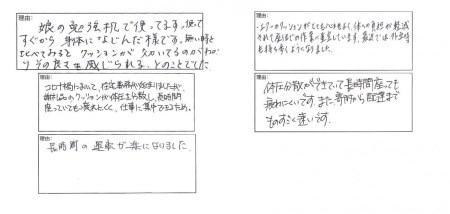 理由:
娘の勉強机で使ってます。使って
すぐから身体になじんだ様です。無い時と
比べてみると クッションが欠いてるのがわか
りその良さを感じられる、とのことでした
理由:
コロナ禍において、在宅勤務が始まりましたが、
クッションが体圧を分散し、長時間
座っていても疲れにくく、仕事に集中できるため。
理由:
長時間の運転が楽になりました。
理由:
クッションがとても心地よく、体への負担が軽減
されて座ほどの作業に重宝しています。最近では、外出時
も持ち歩くようになりました。
理由:
体圧分散ができていて長時間座っても
疲れにくいです。また、寄附から配達まで
ものすごく速いです。